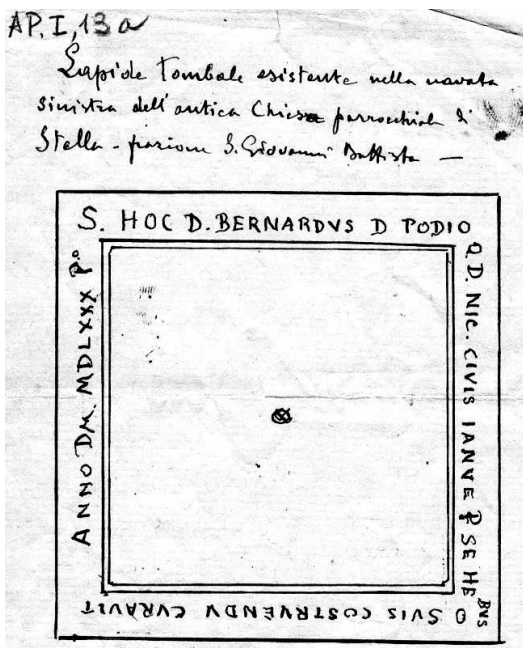 AP. I, 13 a
Lapide Tombale esistente nella navata
sinistra dell'antica Chiesa parrocchiale di
Stella - frazione S. Giovanni Battista —
S. HOC D. BERNARDVS D PODIO
Q. D. NIC. CIVIS IANVE ꝑ SE HE
BVS
Q SVIS COSTRVENDV CVRAVIT
ANNO DM. MDLXXX P.º